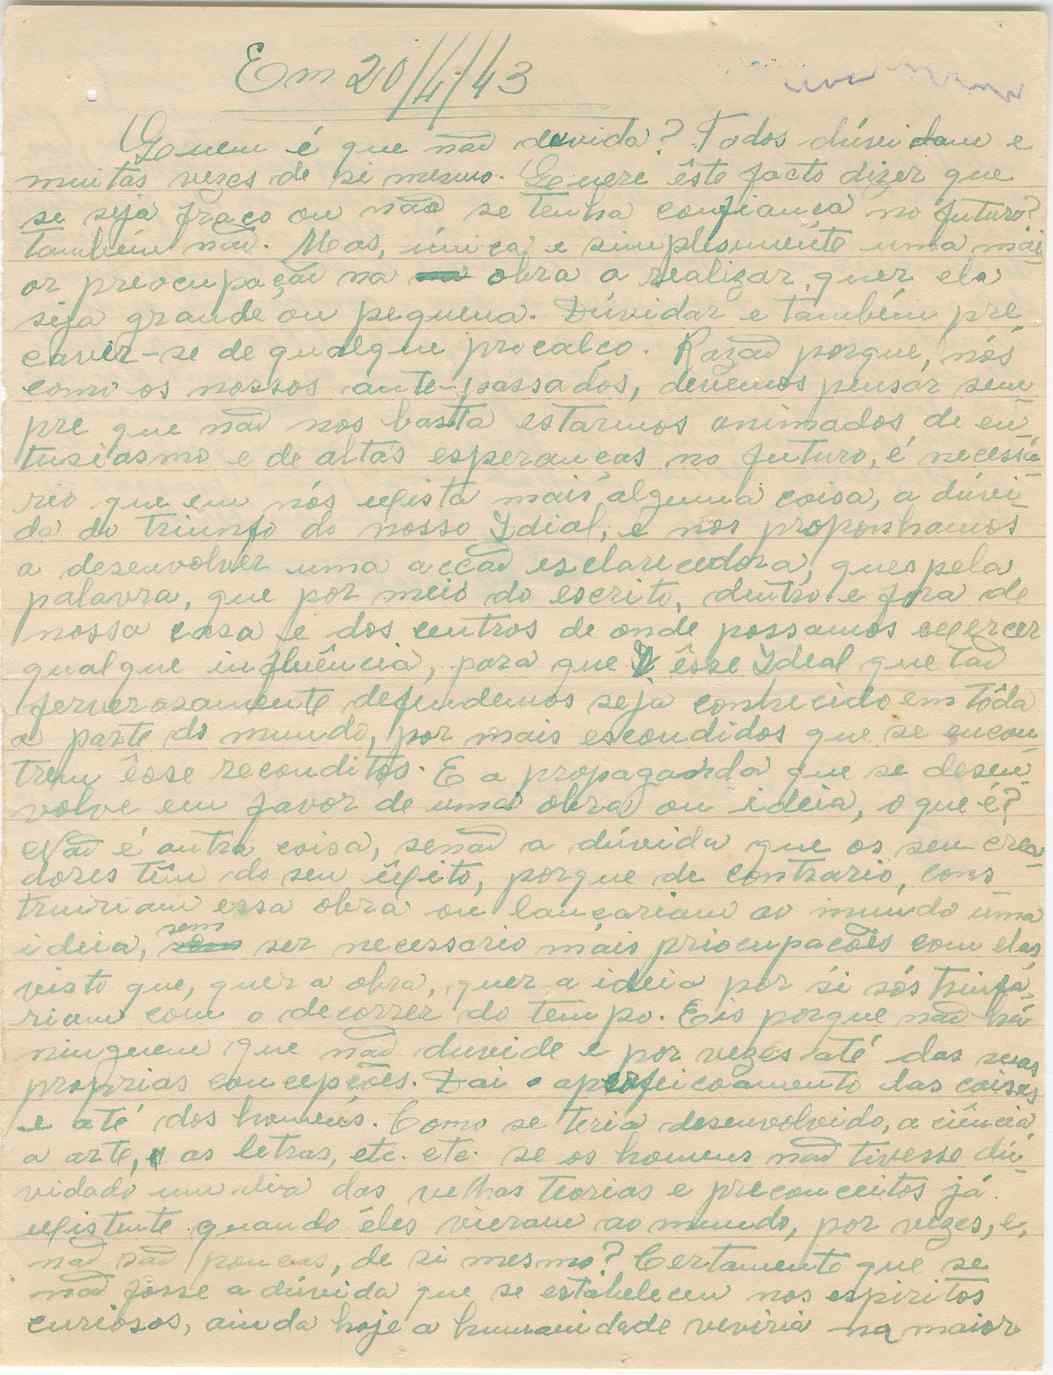 Em 20/4/43
Quem é que não duvida? Todos dúvidam e
muitas vezes de si mesmo. Quere êste facto dizer que
se seja fraco ou não se tenha confiança no futuro?
também não. Mas, única e simplesmente uma mai
or preocupação na obra a realizar, quer ela
seja grande ou pequena. Dúvidar e também pre
caver-se de qualquer procalço. Razão porque, nós
como os nossos ante-passados, devemos pensar sem
pre que não nos basta estarmos animados de en
tusiasmo e de altas esperanças no futuro, é necessá
rio que em nós exista mais alguma coisa, a dúvi
da do triunfo do nosso Idial, e nos proponhamos
a desenvolver uma acção esclarecedora, quer pela
palavra, que por meio do escrito, dentro e fora de
nossa casa e dos centros de onde possamos exercer
qualque influência, para que êsse Ideal que tão
ferverosamente defendemos seja conhecido em tôda
a parte do mundo, por mais escondidos que se encon
trem êsse reconditos. E a propaganda que se desen
volve em favor de uma obra ou ideia, o que é?
Não é outra coisa, senão a dúvida que os seu cria
dores têm do seu êxito, porque de contrario, cons
truiriam essa obra ou lançariam ao mundo uma
ideia, sem ser necessario mais priocupações com elas,
visto que, quer a obra, quer a ideia por si sós triunfa
riam com o decorrer do tempo. Eis porque não há
ninguem que não duvide e por vezes até das suas
proprias concepções. Dai o aperfeicoamento das coisas
e até dos homens. Como se teria desenvolvido, a ciência
a arte, as letras, etc. etc. se os homens não tivesse dú
vidado um dia das velhas teorias e preconceitos já
existente quando êles vieram ao mundo, por vezes, e,
não são poucas, de si mesmo? Certamente que se
não fosse a dúvida que se estabeleceu nos espiritos
curiosos, ainda hoje a humanidade viviria na maior